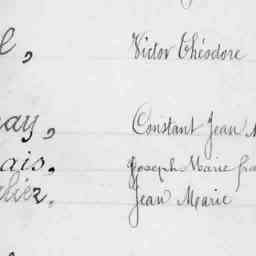 l, Victor Théodore
ay, Constant Jean M
ais. Joseph Marie fra
lier. Jean Marie